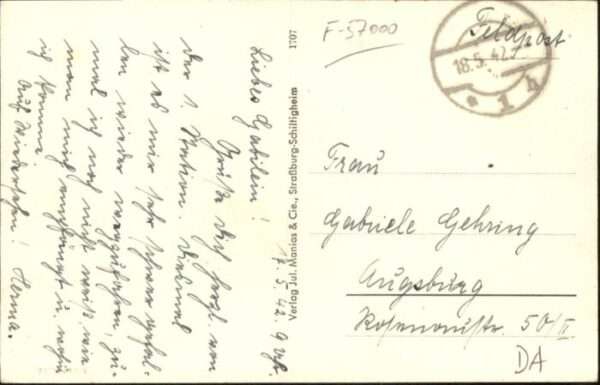 17. 5. 42. 9 Uhr.
Liebes Gabilein!
Grüße Dich herzl. von
der 1. Station. Diesmal
ist es mir sehr schwer gefal-
len wieder wegzufahren, zu-
mal ich noch nicht weiß wie
man mich empfängt u. wohin
ich komme.
Auf Wiedersehen! Herma.
Verlag Jul. Manias & Cie., Straßburg-Schiltigheim
1707
F-57000
Feldpost
18.5.42
1
h
Frau
Gabriele Gehring
Augsburg
50/II
DA